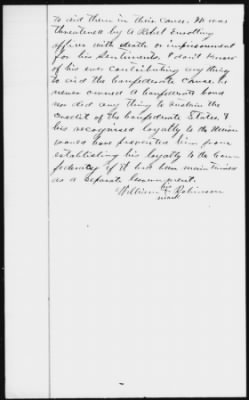 to aid them in their Cause. He was
threatened by A Rebel Enrolling
officer with death or imprisonment
for his Sentiments. I don't know
of his ever Contributing anything
to aid the Confederate Cause. he
never owned A Confederate bond
nor did any thing to sustain the
Credit of the Confederate States. &
his recognised loyalty to the Union
would have prevented him from
establishing his loyalty to the Con-
federacy if it had been maintained
as a Separate Government.
William his Robinson
mark